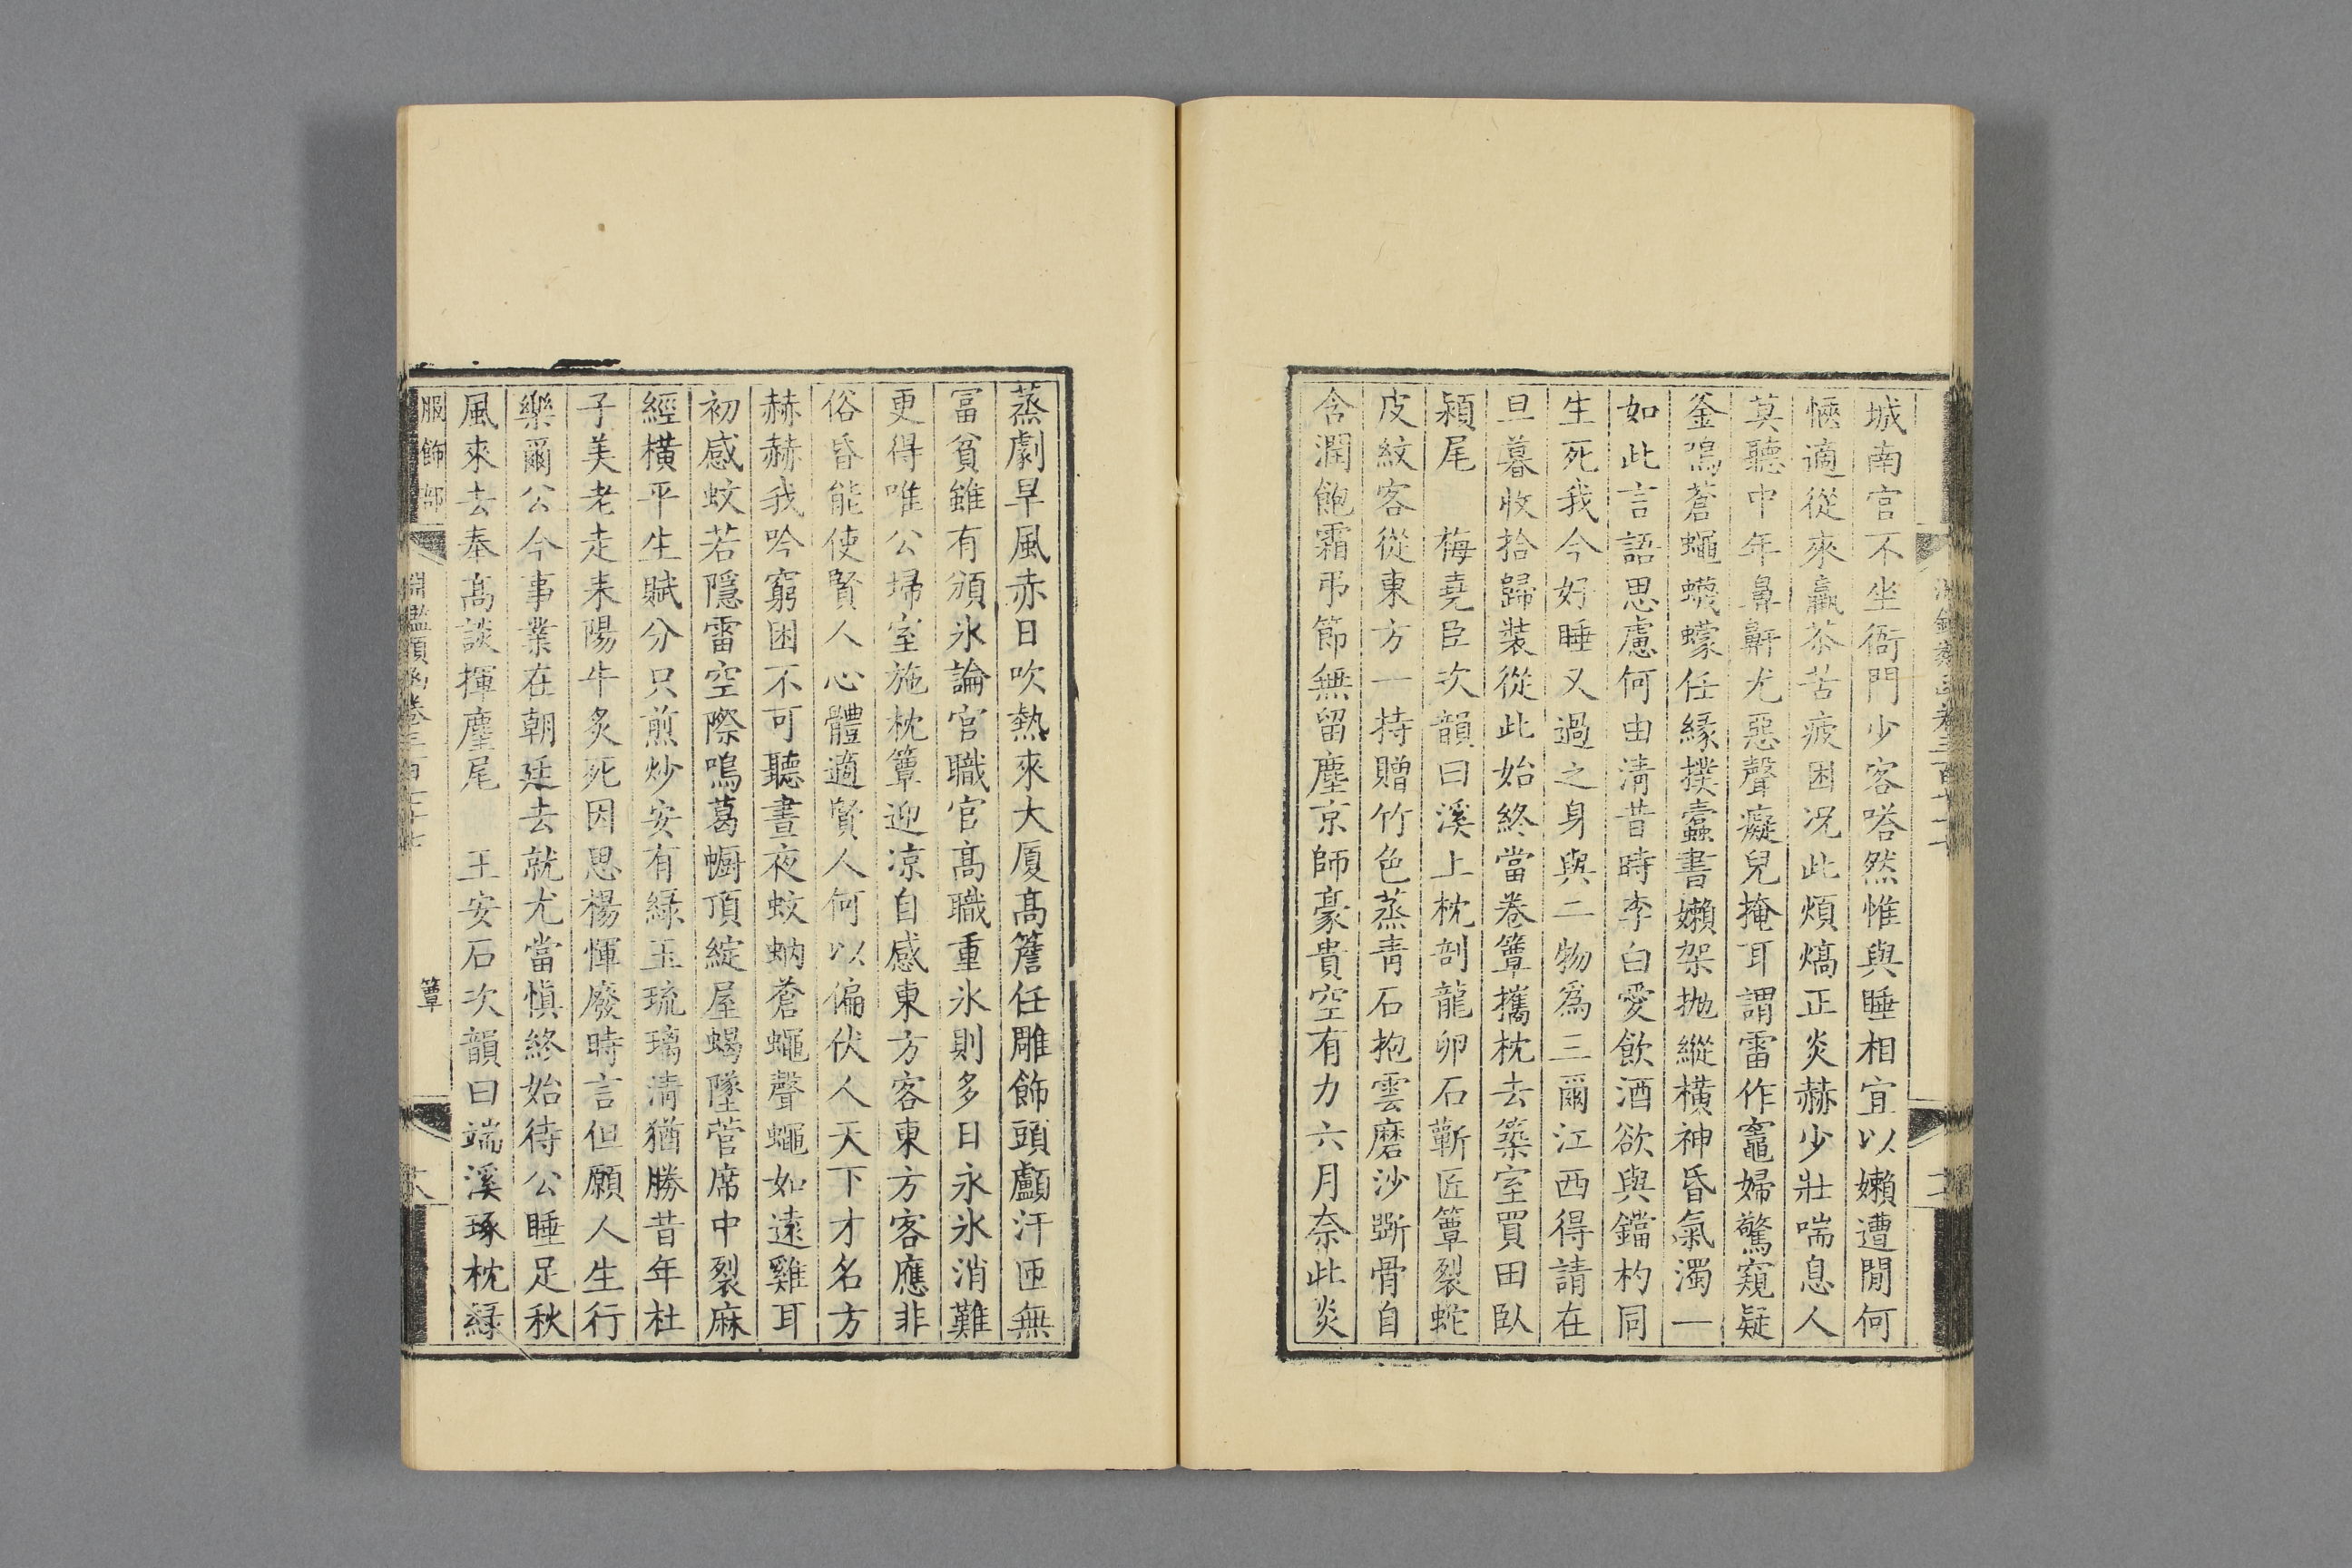 城南官不坐衙門少客嗒然惟與睡相宜以嬾遭閒何
愜適從來羸苶苦疲困況此煩熇正炎赫少壯喘息人
莫聽中年鼻鼾尤惡聲癡兒掩耳謂雷作竈婦驚窺疑
釜鳴蒼蠅蠛蠓任緣撲蠹書嬾架抛縱橫神昏氣濁一
如此言語思慮何由清昔時李白愛飲酒欲與鐺杓同
生死我今好睡又過之身與二物爲三爾江西得請在
旦暮收拾歸裝從此始終當卷簟攜枕去築室買田臥
潁尾　梅堯臣次韻曰溪上枕剖龍卵石蘄匠簟裂蛇
皮紋客從東方一持贈竹色蒸青石抱雲磨沙斲骨自
含潤飽霜弔節無留塵京師豪貴空有力六月奈此炎
蒸劇旱風赤日吹熱來大厦高簷任雕飾頭顱汗匝無
冨貧雖有頒氷論官職官高職重氷則多日永氷消難
更得唯公掃室施枕簟迎凉自感東方客東方客應非
俗昏能使賢人心體適賢人何以偏伏人天下才名方
赫赫我吟窮困不可聽晝夜蚊蚋蒼蠅聲蠅如遠雞耳
初感蚊若隱雷空際鳴葛幮頂綻屋蝎墜菅席中裂麻
經橫平生賦分只煎炒安有綠玉琉璃清猶勝昔年杜
子美老走耒陽牛炙死因思楊惲廢時言但願人生行
樂爾公今事業在朝廷去就尤當愼終始待公睡足秋
風來去奉高談揮麈尾　王安石次韻曰端溪琢枕緑
服飾部
淵鑑類函卷三百七十七
簟